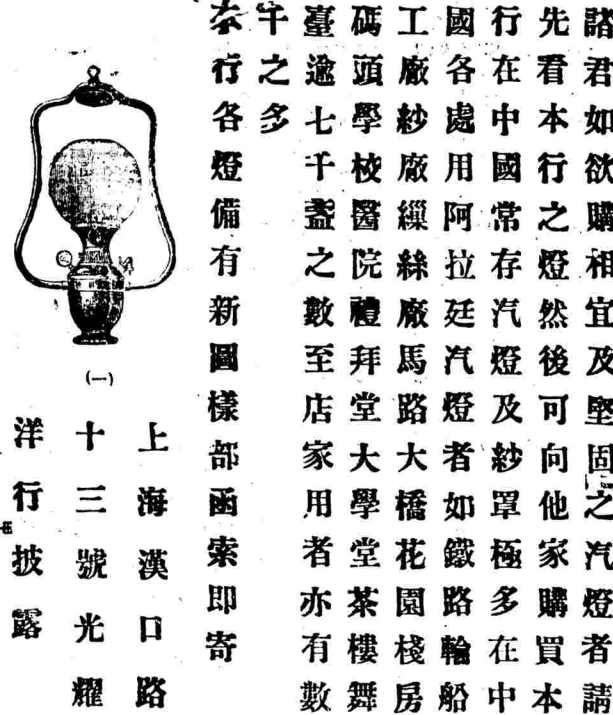 諸君如欲購相宜及堅固之汽燈者請
先看本行之燈然後可向他家購買本
行在中國常存汽燈及紗罩極多在中
國各處用阿拉廷汽燈者如鐵路輪船
工廠紗廠繅絲廠馬路大橋花園棧房
碼頭學校醫院禮拜堂大學堂茶樓舞
臺逾七千盞之數至店家用者亦有數
千之多
本行各燈備有新圖樣部函索即寄
(一)
上海漢口路
十三號光耀
洋行披露